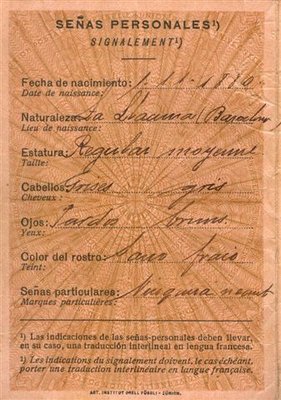 SEÑAS PERSONALES¹)
SIGNALEMENT¹)
Fecha de nacimiento: 1.11.1876
Date de naissance:
Naturaleza: La Llacuna (Barcelona)
Lieu de naissance:
Estatura: Regular moyenne
Taille:
Cabellos: Grises gris
Cheveux:
Ojos: Pardos bruns
Yeux:
Color del rostro: Sano frais
Teint:
Señas particulares: Ninguna
Marques particulières:
¹) Las indicaciones de las señas-personales deben llevar,
en su caso, una traducción interlineal en lengua francesa.
¹) Les indications du signalement doivent, le cas échéant,
porter une traduction interlinéaire en langue française.
ART. INSTITUT ORELL FÜSSLI - ZÜRICH.